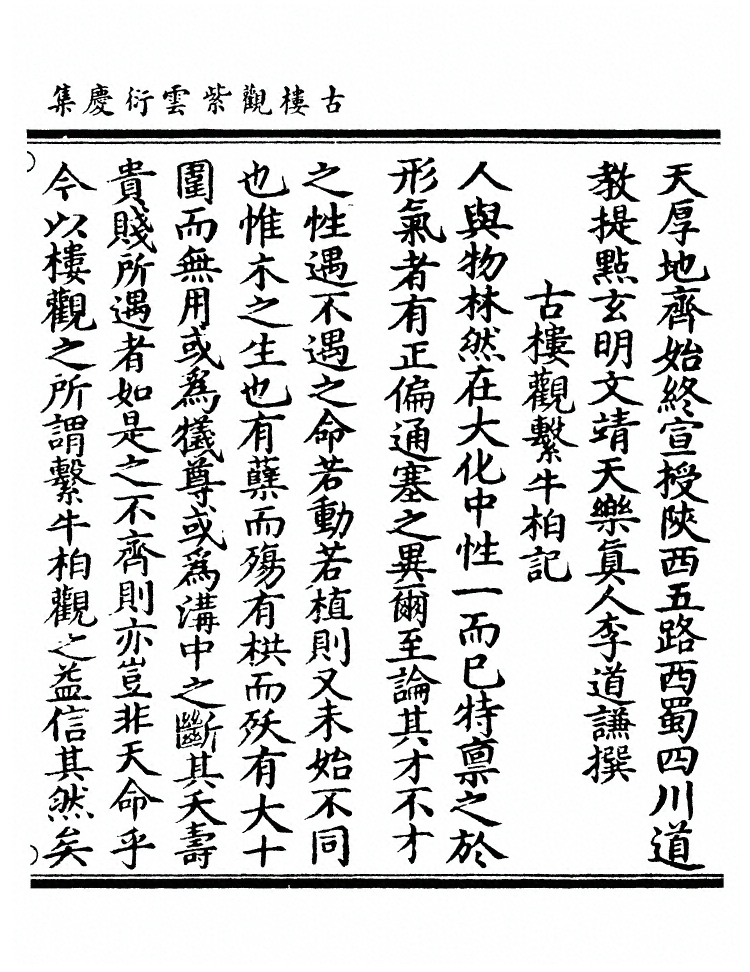 古樓觀紫雲衍慶集
天厚地齊始終宣授陝西五路西蜀四川道
教提點玄明文靖天樂真人李道謙撰
古樓觀繫牛柏記
人與物林然在大化中性一而已特禀之於
形氣者有正偏通塞之異爾至論其才不才
之性遇不遇之命若動若植則又未始不同
也惟木之生也有蘖而殤有栱而殀有大十
圍而無用或爲犧尊或爲溝中之斷其夭壽
貴賤所遇者如是之不齊則亦豈非天命乎
今以樓觀之所謂繫牛柏觀之益信其然矣